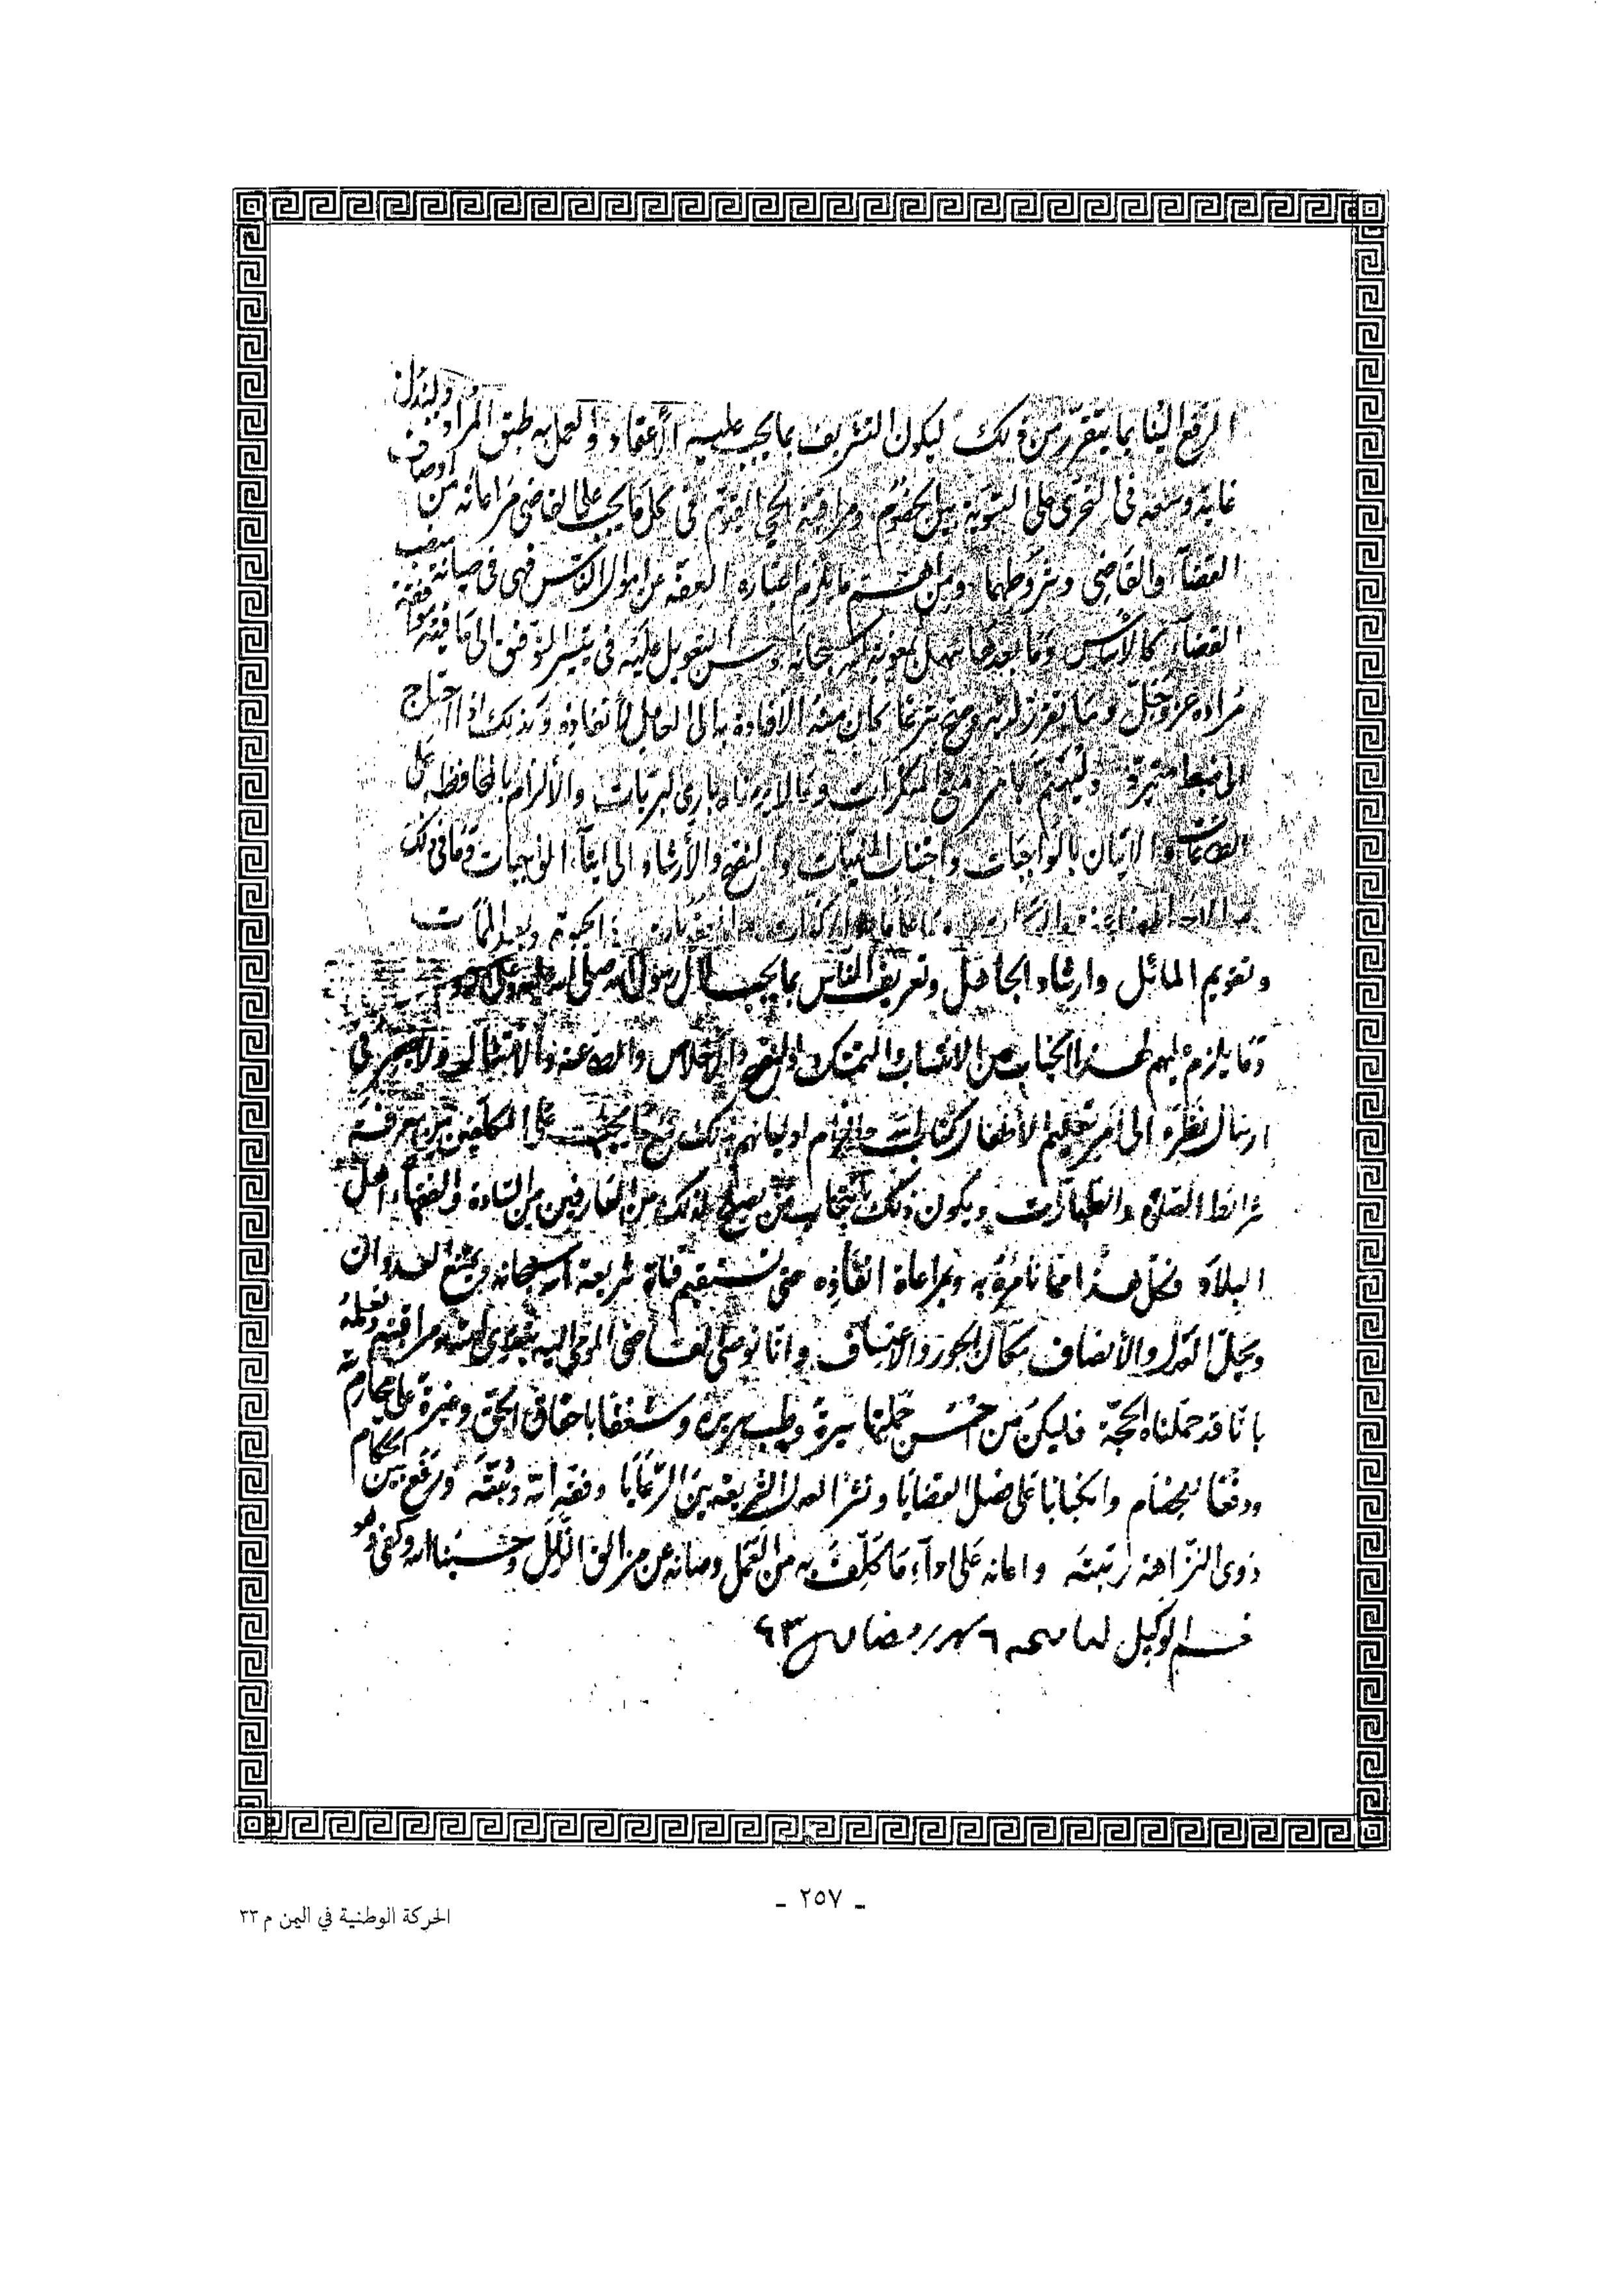 الرفع الينا بما يتقرر من ذلك ليكون التشريف بما يجب عليه الاعتماد والعمل به طبق المراد وليبذل
غاية وسعه فى التحرى على التسوية بين الخصوم ومراقبة الحي القيوم فى كل ما يجب على القاضى مراعاته من اوصاف
القضآء والقاضى وشروطهما ومن اهم ما يلزم العفة عن اموال الناس فهى فى صيانة منصب
القضآء كالاساس وما بعدها سهل بمعونة الله سبحانه وحسن التعويل عليه فى تيسير التوفيق الى ما فيه موافقة
مراده عز وجل وما تقرر لديه وصح شرعا كان منه الافادة به الى العامل لأنفاذه وكذلك اذا احتاج
الى ضبط وليهتم بامر منع المنكرات باري البريات والألزام بالمحافظه على
والاتيان بالواجبات واجتناب والنصح والأرشاد الى ايتآء الواجبات وما فى ذلك
الحيوة وبعد الممات
وتقويم المائل وارشاد الجاهل وتعريف الناس بما يجب لآل رسول الله صلى الله عليه وعلى آله وسلم
وما يلزم عليهم لهذا الجناب من الانتساب والتمسك والنصح والأخلاص والطاعة والامتثال ولا فى
ارسال نظره الى امر تعليم الأطفال كتاب الله والزام اوليائهم بذلك مع ما يجب على المكلفين من معرفة
شرائط الصلوة والطهارات ويكون ذلك بانتخاب من يصلح لذلك من العارفين من السادة والفقهآء اهل
البلاد وكل هذا مما نامره به وبمراعاة انفاذه حتى تستقيم قناة شريعة الله سبحانه ويمتنع العدوان
ويحل العدل والأنصاف مكان الجور والاعتساف وانا نوصى القاضى المومى اليه بتقوى الله ومراقبته ونعلمه
بانا قد حملناه الحجة فليكن من احسن حملتها سيرة وطيب سريرة وشغفا باحقاق الحق وغيرة على محارمه
ودفعا للخصام وانكبابا على فصل القضايا ونشر العدل والشريعة بين الرعايا وفقه الله وثبته ورفع بين الحكام
ذوى النزاهة رتبته واعانه على ادآء ما كلف به من العمل وصانه عن مزالق الزلل وحسبنا الله وكفى وهو
نعم الوكيل ٦ شهر رمضان سنة ٦٣
ـ ٢٥٧ ـ
الحركة الوطنية في اليمن م ٣٣